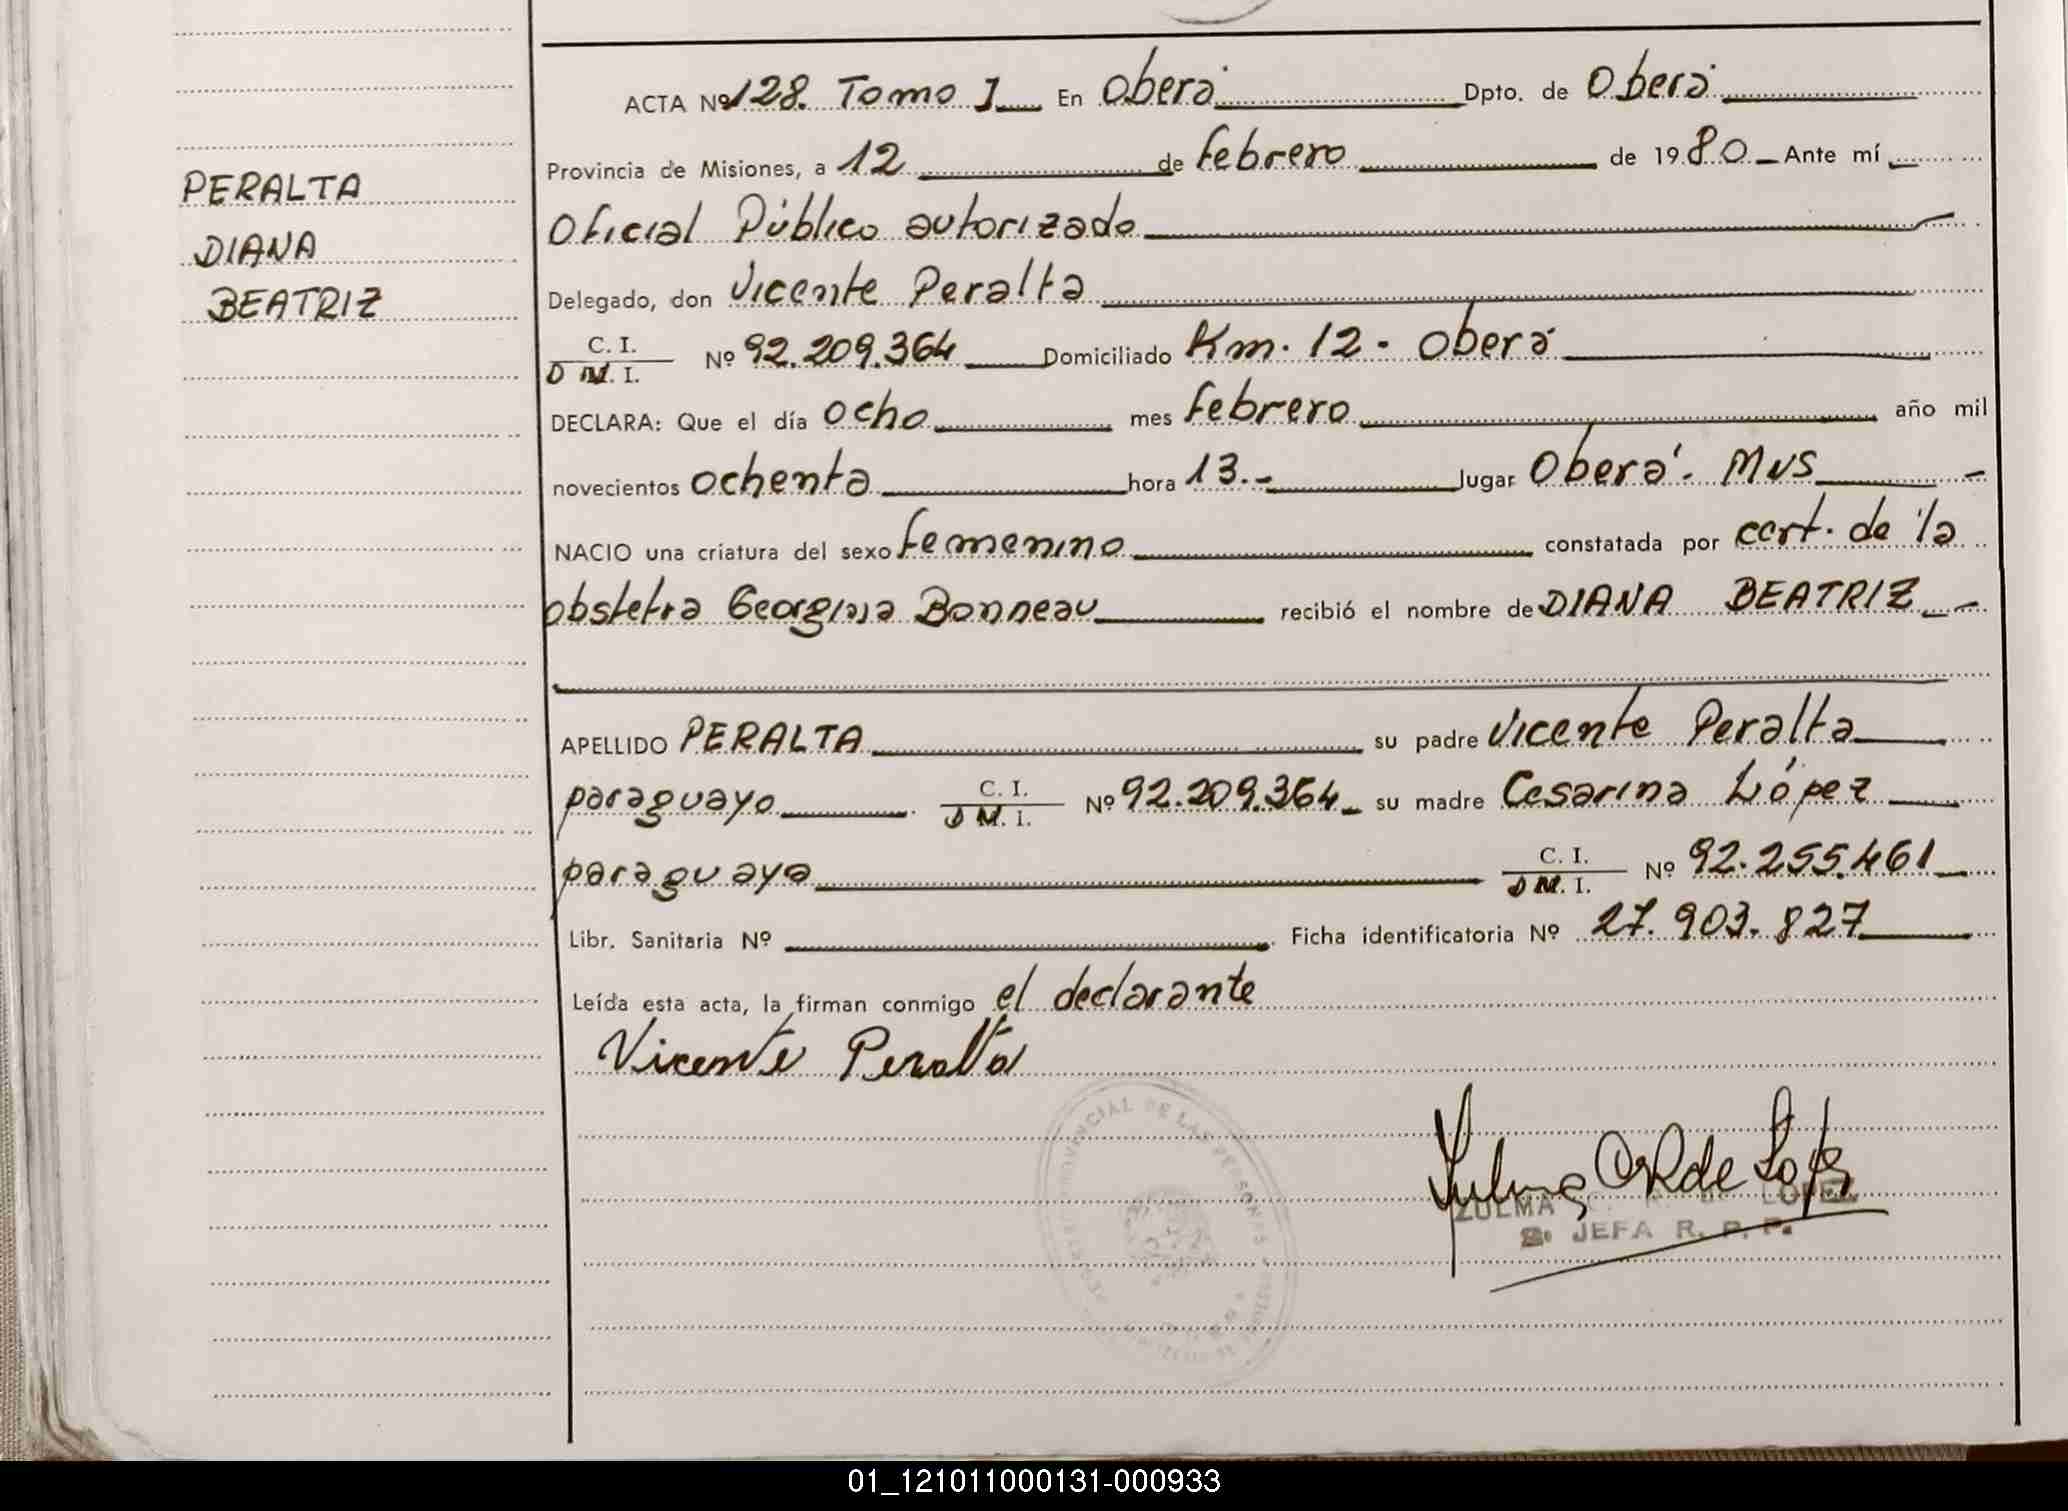 PERALTA
DIANA
BEATRIZ
ACTA Nº 128. Tomo I En Oberá Dpto. de Oberá
Provincia de Misiones, a 12 de febrero de 1980 Ante mí
Oficial Público autorizado
Delegado, don Vicente Peralta
C. I.
D N. I. Nº 92.209.364 Domiciliado Km. 12 - Oberá
DECLARA: Que el día ocho mes febrero año mil
novecientos ochenta hora 13.- lugar Oberá. Mns
NACIO una criatura del sexo femenino constatada por cert. de la
obstetra Georgina Bonneau recibió el nombre de DIANA BEATRIZ
APELLIDO PERALTA su padre Vicente Peralta
paraguayo C. I.
D N. I. Nº 92.209.364 su madre Cesarina López
paraguaya C. I.
D N. I. Nº 92.255.461
Libr. Sanitaria Nº Ficha identificatoria Nº 27.903.827
Leída esta acta, la firman conmigo el declarante
Vicente Peralta
PROVINCIAL DE LAS PERSONAS
ZULMA C. R. DE LOPEZ
2º JEFA R. P. P.
01_121011000131-000933